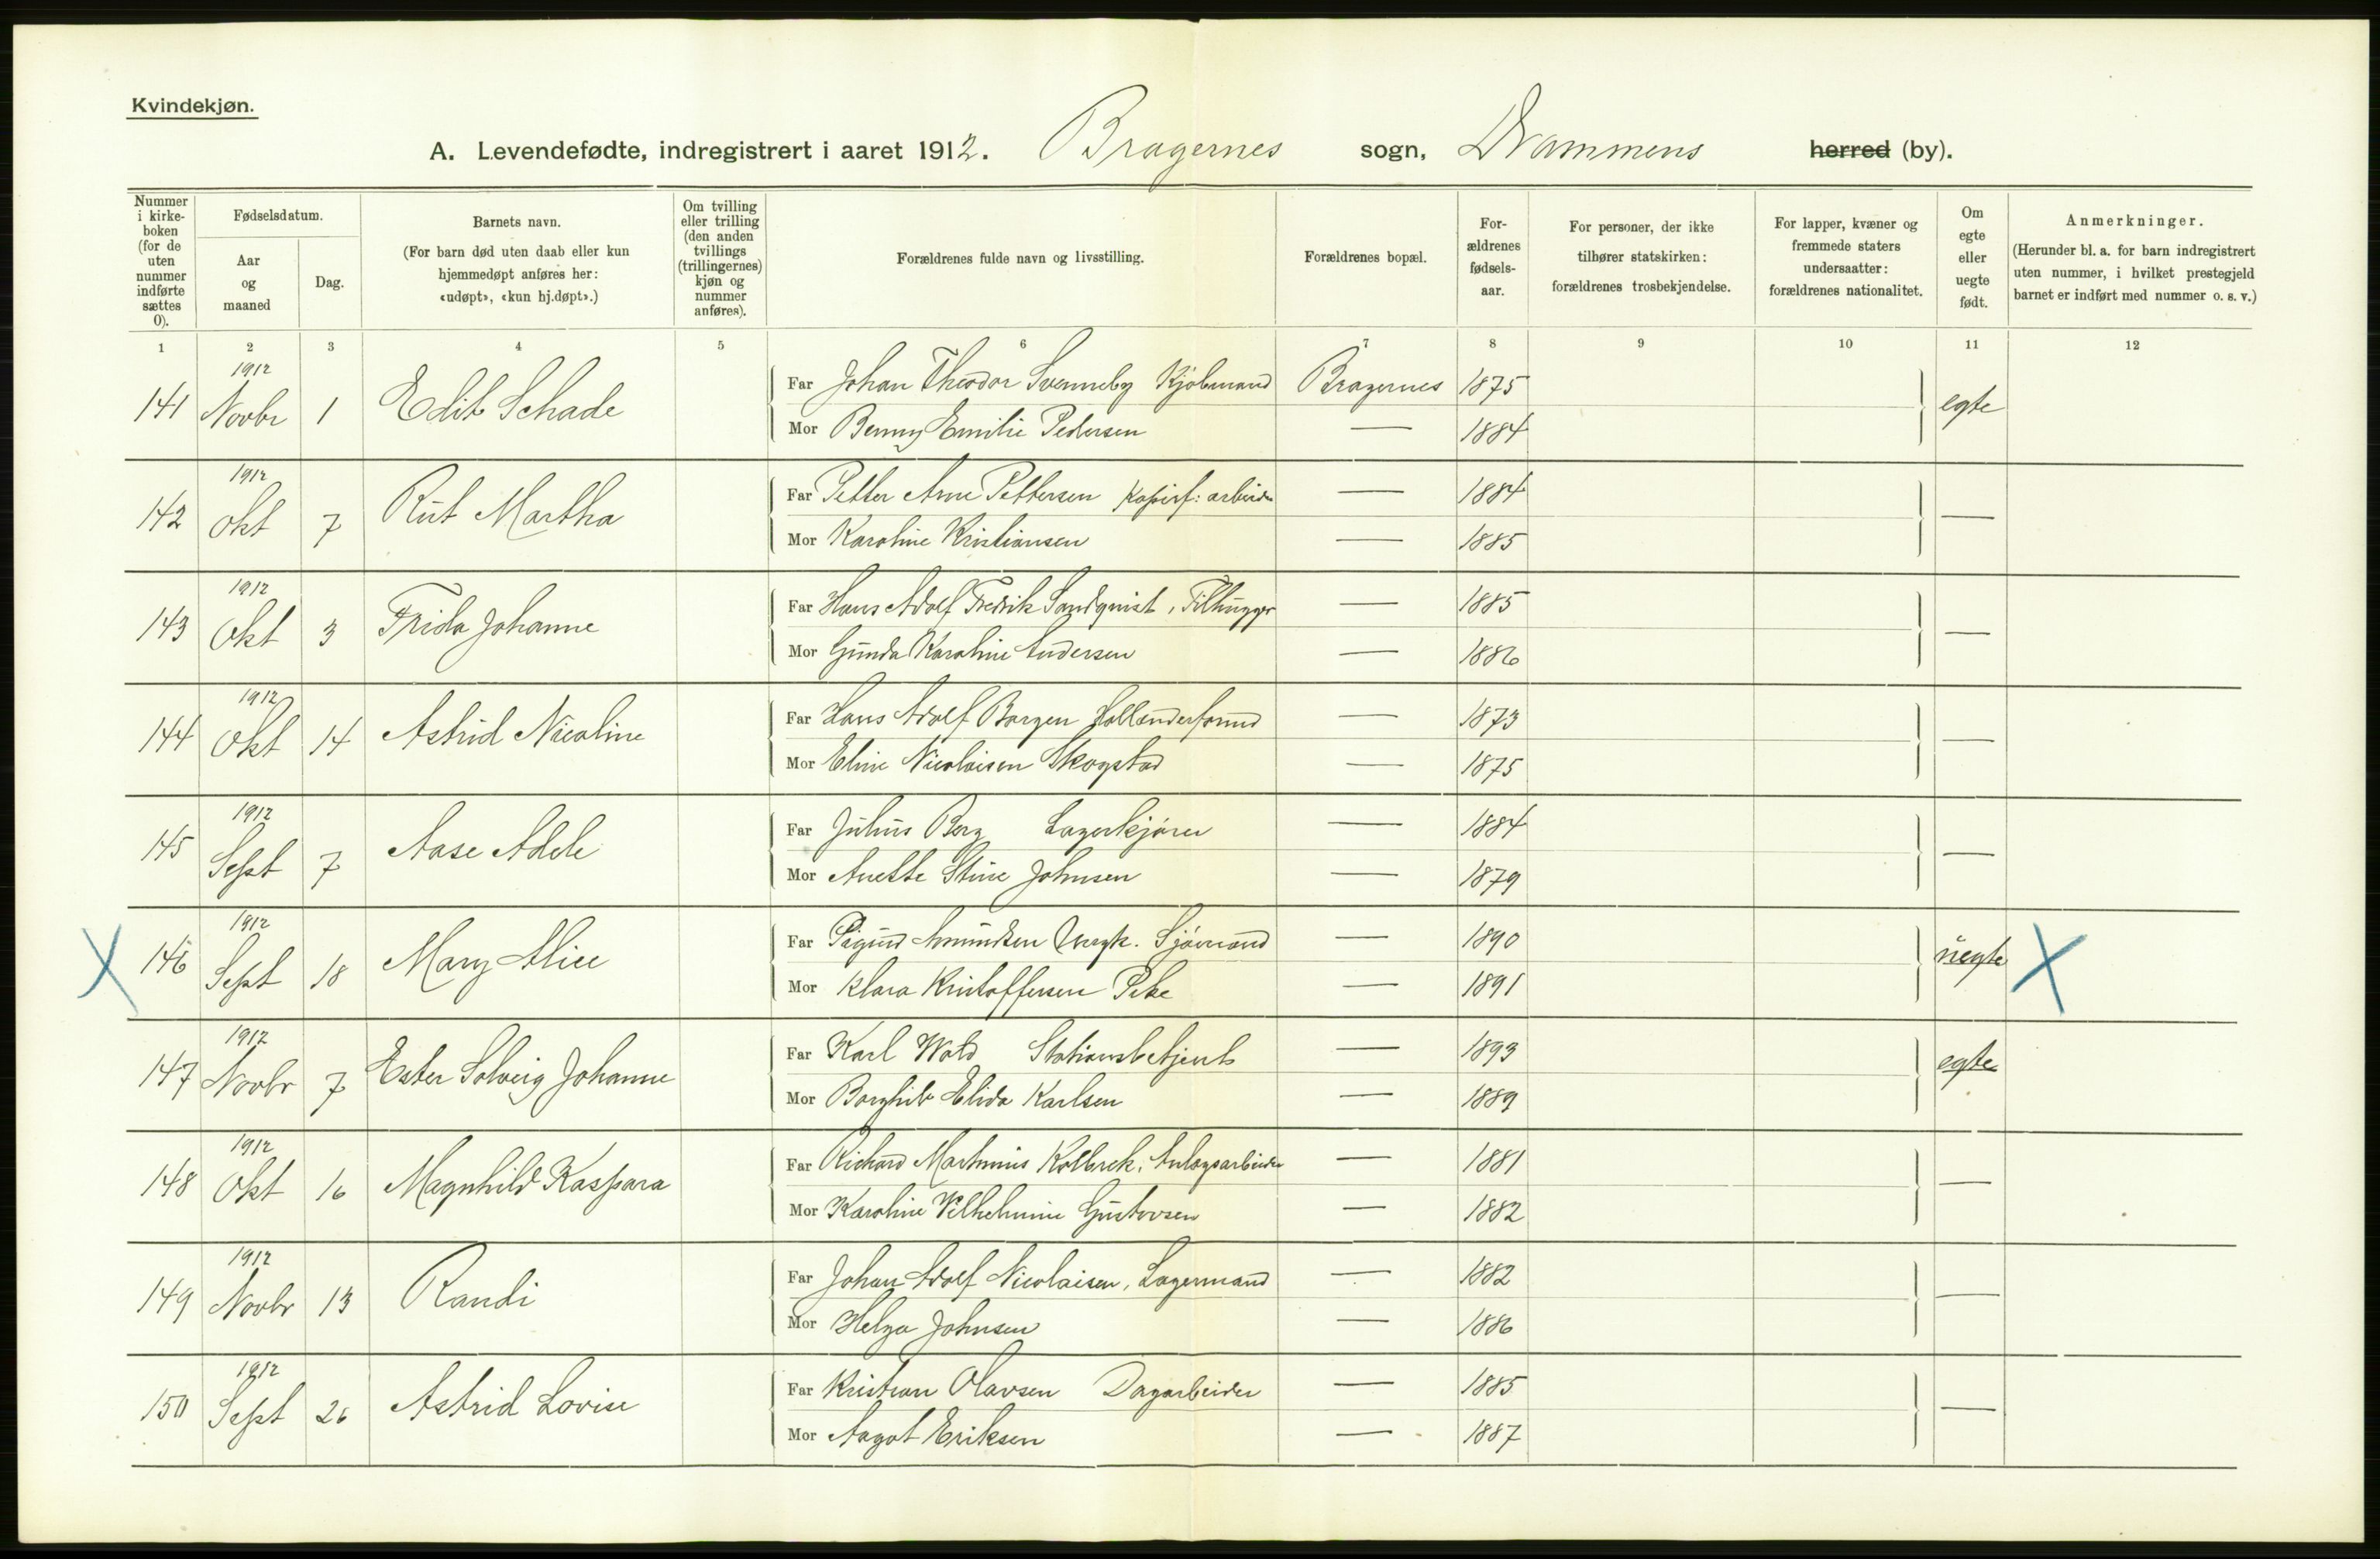 Kvindekjøn.
A. Levendefødte, indregistrert i aaret 1912. Bragernes sogn, Drammens herred (by).
Nummer i kirkeboken (for de uten nummer indførte sættes 0).
Fødselsdatum.
Aar og maaned
Dag.
Barnets navn.
(For barn død uten daab eller kun hjemmedøpt anføres her: «udøpt», «kun hj.døpt».)
Om tvilling eller trilling (den anden tvillings (trillingernes) kjøn og nummer anføres).
Forældrenes fulde navn og livsstilling.
Forældrenes bopæl.
Forældrenes fødselsaar.
For personer, der ikke tilhører statskirken: forældrenes trosbekjendelse.
For lapper, kvæner og fremmede staters undersaatter: forældrenes nationalitet.
Om egte eller uegte født.
Anmerkninger.
(Herunder bl. a. for barn indregistrert uten nummer, i hvilket prestegjeld barnet er indført med nummer o. s. v.)
1 2 3 4 5 6 7 8 9 10 11 12
141 1912 Novbr 1 Edit Schade Far Johan Theodor Svenneby Kjøbmand Bragernes 1875 egte
Mor Benny Emilie Pedersen — 1884
142 1912 Okt 7 Rut Martha Far Petter Arne Pettersen Papirf: arbeider — 1884 —
Mor Karoline Kristiansen — 1885
143 1912 Okt 3 Frida Johanne Far Hans Adolf Fredrik Sandquist, Filhugger — 1885 —
Mor Gunda Karoline Andersen — 1886
144 1912 Okt 14 Astrid Nicoline Far Hans Adolf Borgen Hollenderformd — 1873 —
Mor Eline Nicolaisen Skogstad — 1875
145 1912 Sept 7 Aase Adele Far Julius Berg Lagerkjører — 1884 —
Mor Anette Stine Johnsen — 1879
X 146 1912 Sept 18 Mary Alice Far Sigurd Amundsen Ungk. Sjømand — 1890 uegte X
Mor Klara Kristoffersen Pike — 1891
147 1912 Novbr 7 Ester Solveig Johanne Far Karl Wold Stationsbetjent — 1893 egte
Mor Borghild Elida Karlsen — 1889
148 1912 Okt 16 Magnhild Kaspara Far Richard Martinius Kolbrek, Anlægsarbeider — 1881 —
Mor Karoline Vilhelmine Gustavsen — 1882
149 1912 Novbr 13 Randi Far Johan Adolf Nicolaisen, Lagermand — 1882 —
Mor Helga Johnsen — 1886
150 1912 Sept 26 Astrid Lovise Far Kristian Olavsen Dagarbeider — 1885 —
Mor Aagot Eriksen — 1887